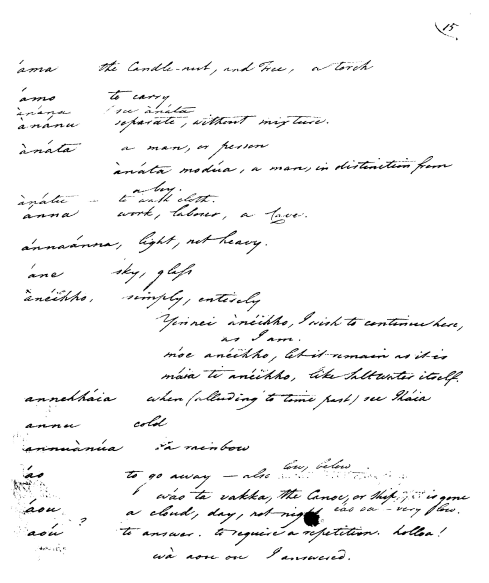 15
áma the Candle-nut, and Tree, a torch
ámo to carry
ànána see ànáta
ànanu separate, without mixture.
ànáta a man, or person
ànáta modúa, a man, in distinction from
a boy.
ànátu — to wash cloth.
anna work, labour, a
ánnaánna, light, not heavy.
áne sky, glass
ànéïkho, simply, entirely
Yinnei ànéïkho, I wish to continue here,
as I am.
móe anéïkho, let it remain as it is
máïa te anéïkho, like Salt water itself.
annekháïa when (alluding to time past) see Iháïa
annu cold
annuànúa a rainbow
áo to go away — also low, below
wáo ta vakka, the Canoe, or Ship, is gone
áou a cloud, day, not night, — very low.
aoú ? to answer. to require a repetition. holloa!
wà aou ou I answered.